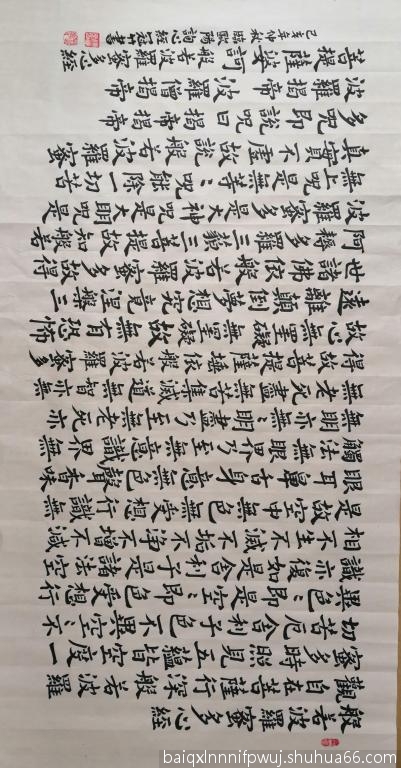 般若波羅蜜多心經
觀自在菩薩行深般若波羅
蜜多時照見五蘊皆空度一
切苦厄舍利子色不異空〻不
異色〻即是空〻即是色受想行
識亦復如是舍利子是諸法空
相不生不滅不垢不淨不增不減
是故空中無色無受想行識無
眼耳鼻舌身意無色聲香味
觸法無眼界乃至無意識界無
無明亦無〻明盡乃至無老死亦
無老死盡無苦集滅道無智亦無
得故菩提薩埵依般若波羅蜜多
故心無罣礙無罣礙故無有恐怖
遠離顛倒夢想究竟涅槃三
世諸佛依般若波羅蜜多故得
阿耨多羅三藐三菩提故知般若
波羅蜜多是大神咒是大明咒是
無上咒是無等〻咒能除一切苦
真實不虛故說般若波羅蜜
多咒即說咒曰揭帝揭帝
波羅揭帝波羅僧揭帝
菩提薩婆訶般若波羅蜜多心經
己亥年仲秋臨歐陽詢心經冠竹書
baiqxlnnnifpwuj.shuhua66.com